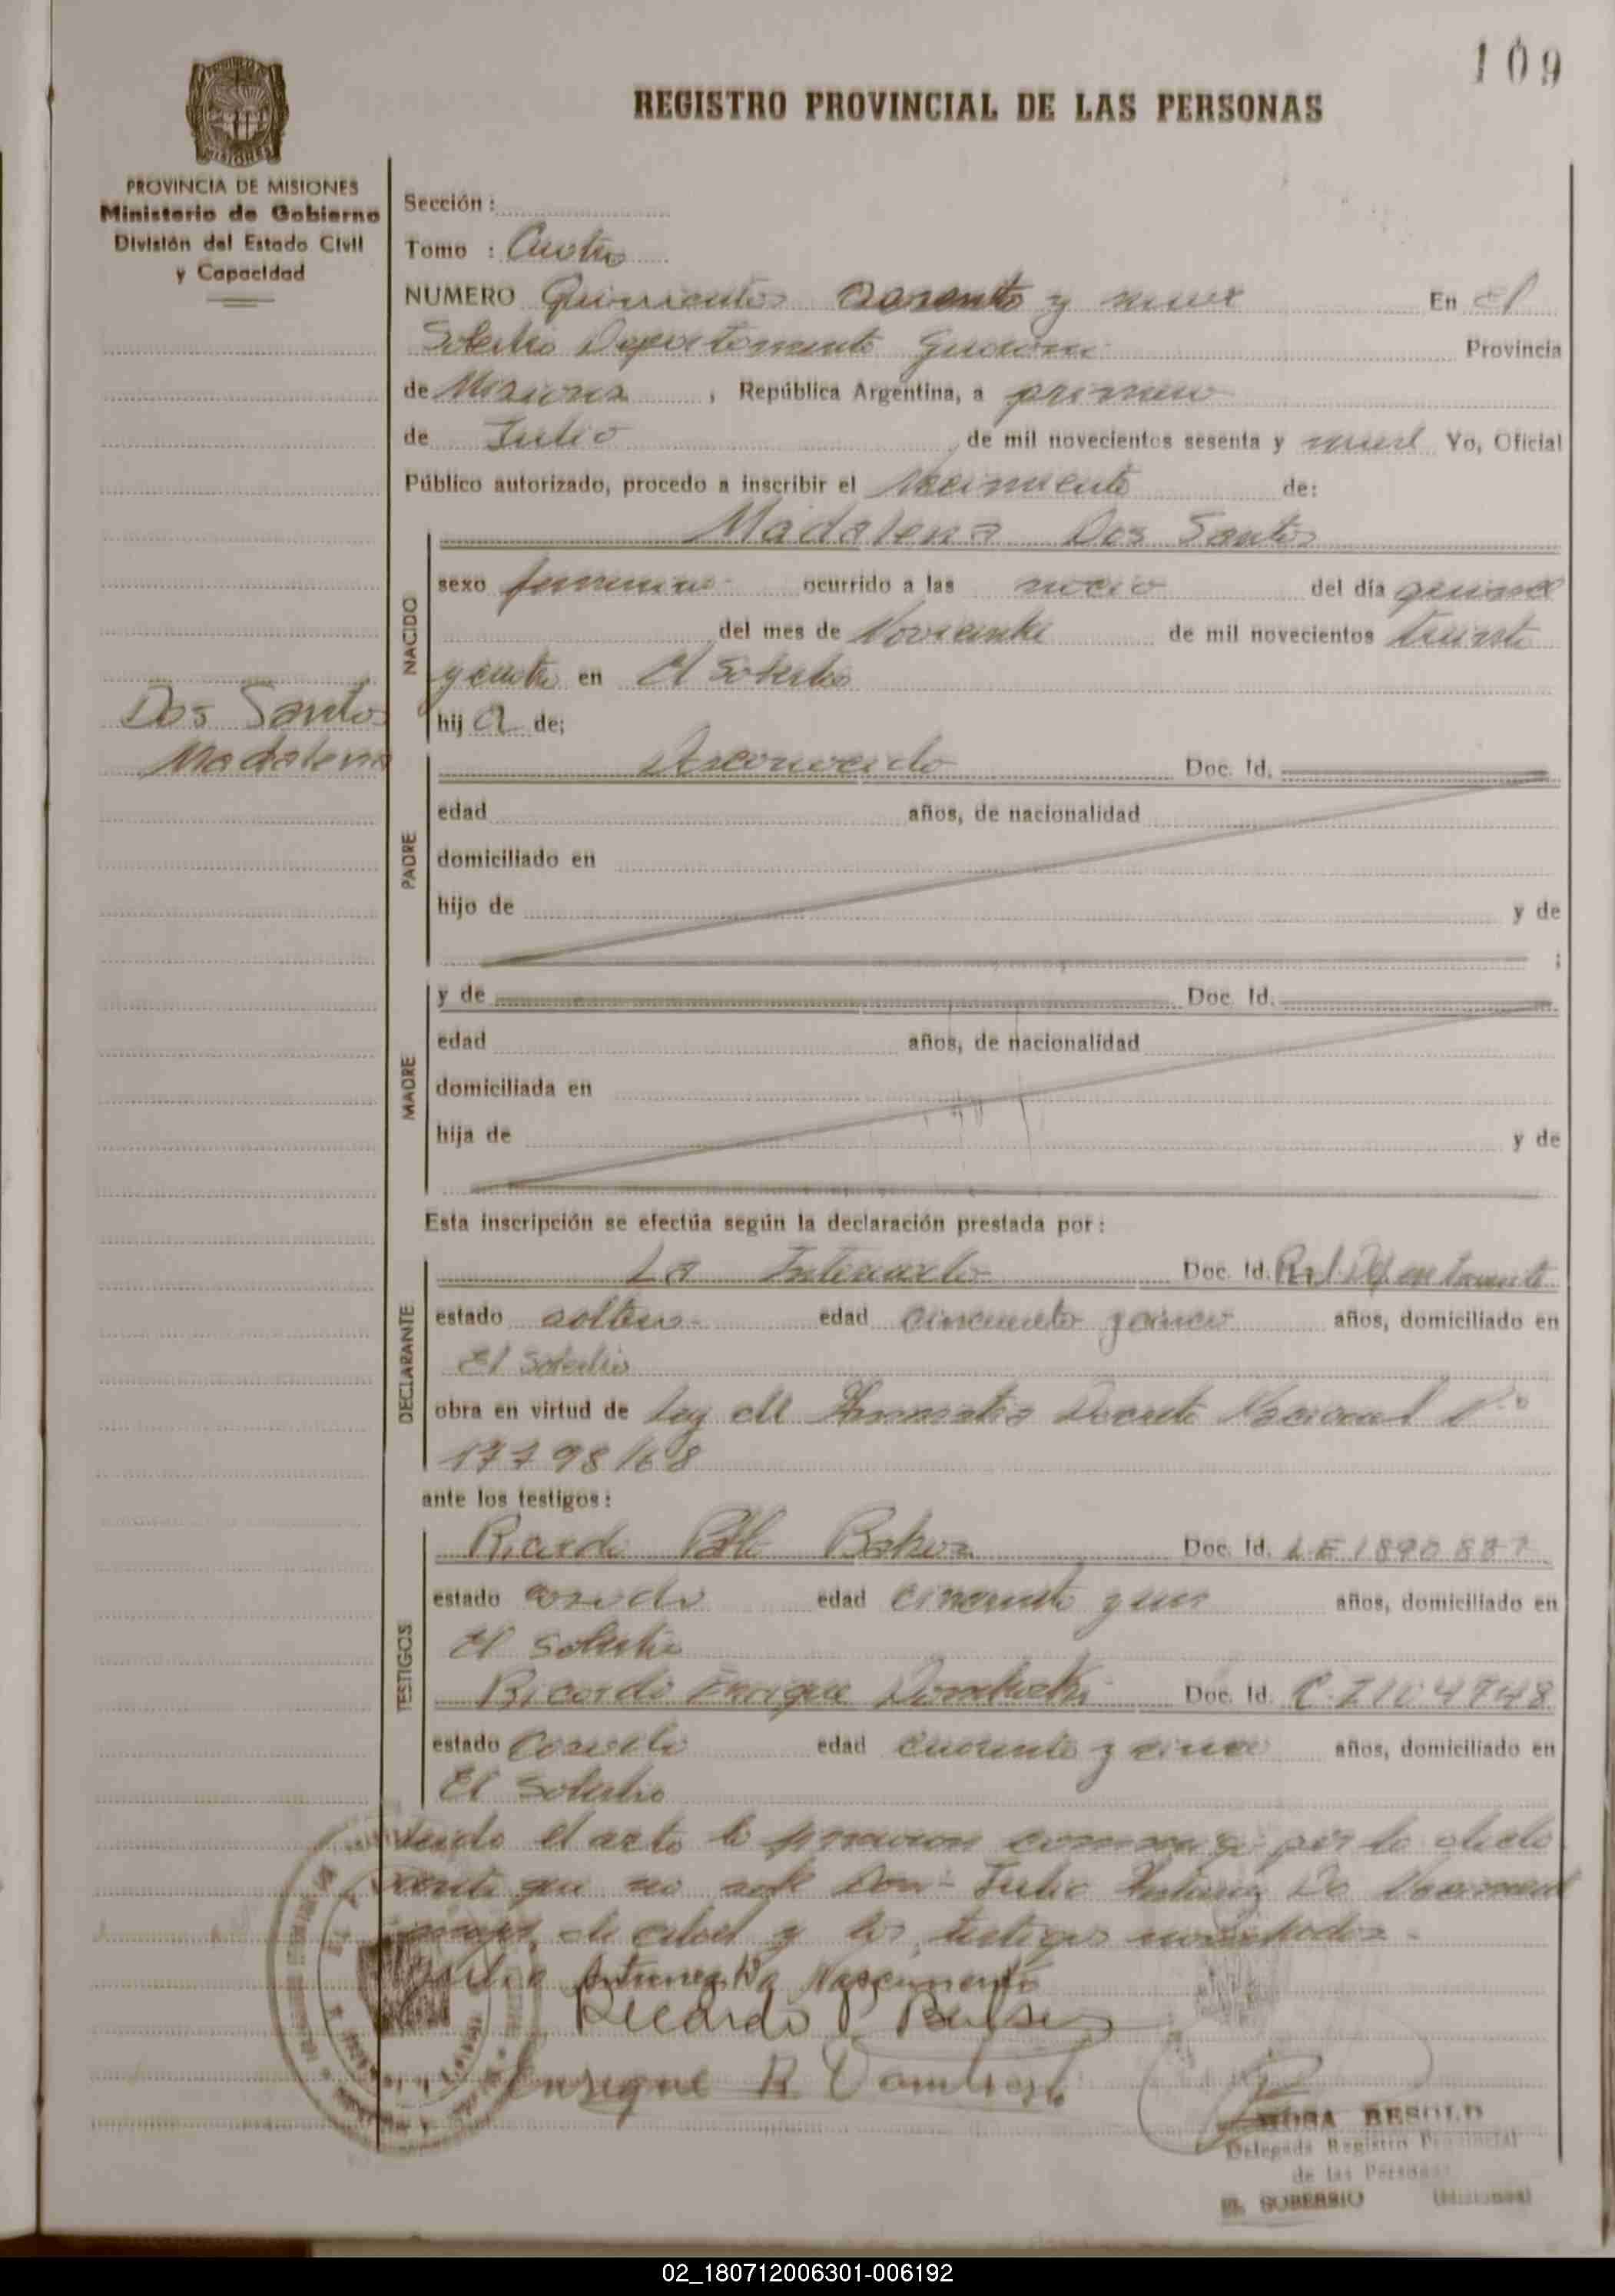 109
REGISTRO PROVINCIAL DE LAS PERSONAS
PROVINCIA DE MISIONES
Ministerio de Gobierno
División del Estado Civil
y Capacidad
Sección:
Tomo : Cuatro
NUMERO Quinientos y nueve En El
Soberbio Departamento Guaraní Provincia
de Misiones, República Argentina, a primero
de Julio de mil novecientos sesenta y nueve Yo, Oficial
Público autorizado, procedo a inscribir el Nacimiento de:
Madalena Dos Santos
NACIDO
sexo femenino ocurrido a las del día quince
del mes de Noviembre de mil novecientos treinta
y cuatro en El Soberbio
Dos Santos
Madalena
hij a de;
PADRE
Desconocido Doc. Id.
edad años, de nacionalidad
domiciliado en
hijo de y de
;
MADRE
y de Doc. Id.
edad años, de nacionalidad
domiciliada en
hija de y de
Esta inscripción se efectúa según la declaración prestada por:
DECLARANTE
La Doc. Id. en tramite
estado edad cincuenta y cinco años, domiciliado en
El Soberbio
obra en virtud de Ley de Amnistia Decreto Nacional Nº
17798/68
ante los testigos:
TESTIGOS
Ricardo Doc. Id. LE 1890887
estado casado edad cincuenta y un años, domiciliado en
El Soberbio
Ricardo Enrique Doc. Id. C.I 104748
estado Casado edad cuarenta y cinco años, domiciliado en
El Soberbio
Leido el acta lo firmaron conmigo por la decla
rante que no sabe Don Julio
de edad y los testigos nombrados.
Antunez Da Nascimento
Ricardo P
Enrique R
ROSA BESOLD
Delegada Registro Provincial
de las Personas
EL SOBERBIO (Misiones)
02_180712006301-006192